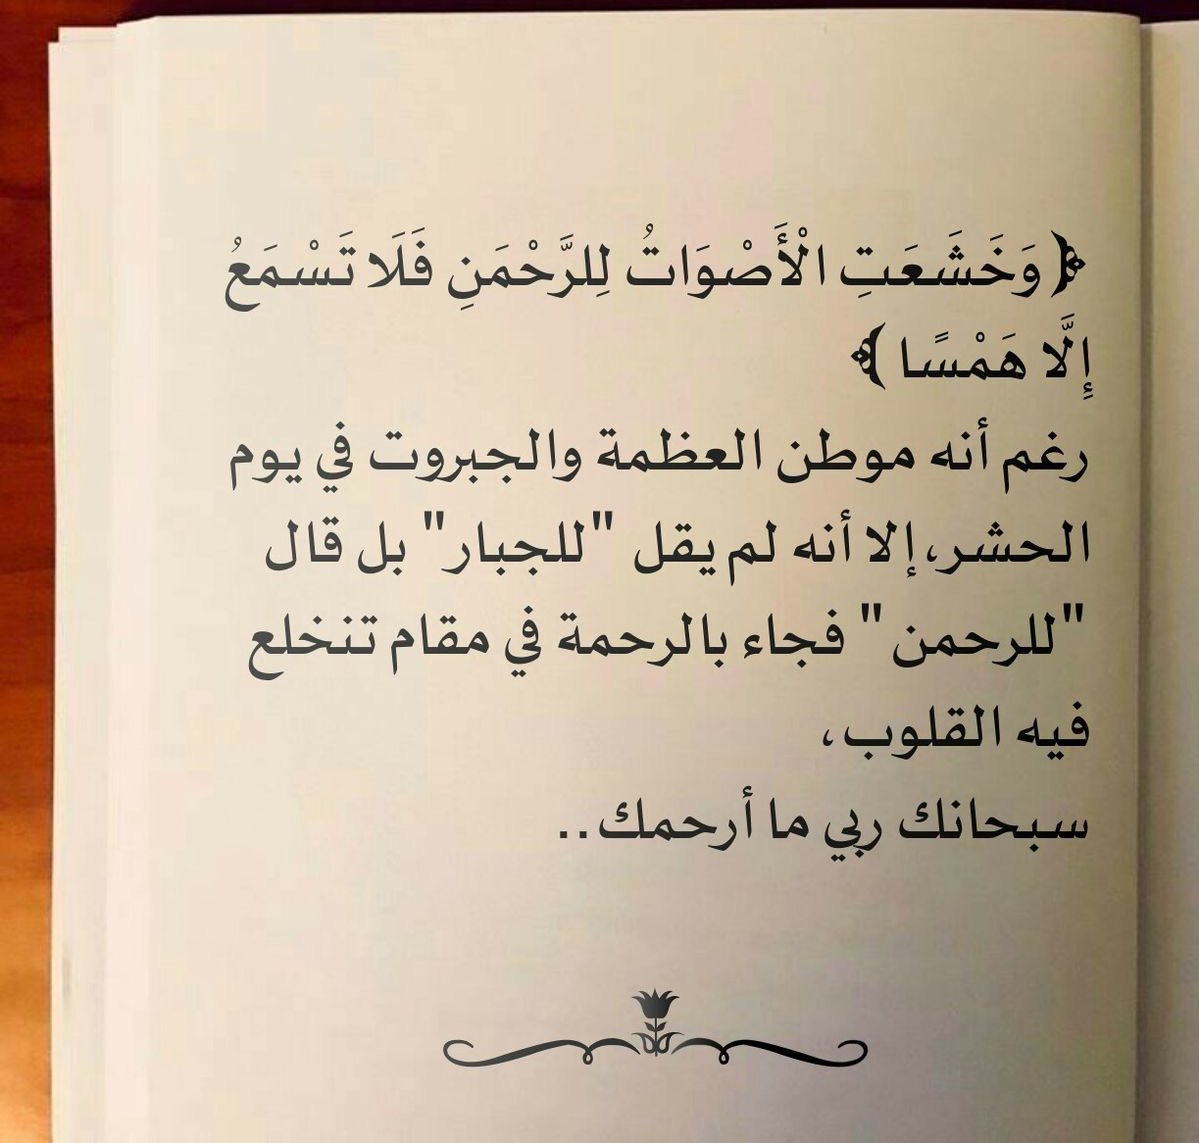 ﴿ وَخَشَعَتِ الْأَصْوَاتُ لِلرَّحْمَنِ فَلَا تَسْمَعُ
إِلَّا هَمْسًا ﴾
رغم أنه موطن العظمة والجبروت في يوم
الحشر،إلا أنه لم يقل "للجبار" بل قال
"للرحمن " فجاء بالرحمة في مقام تنخلع
فيه القلوب،
سبحانك ربي ما أرحمك..